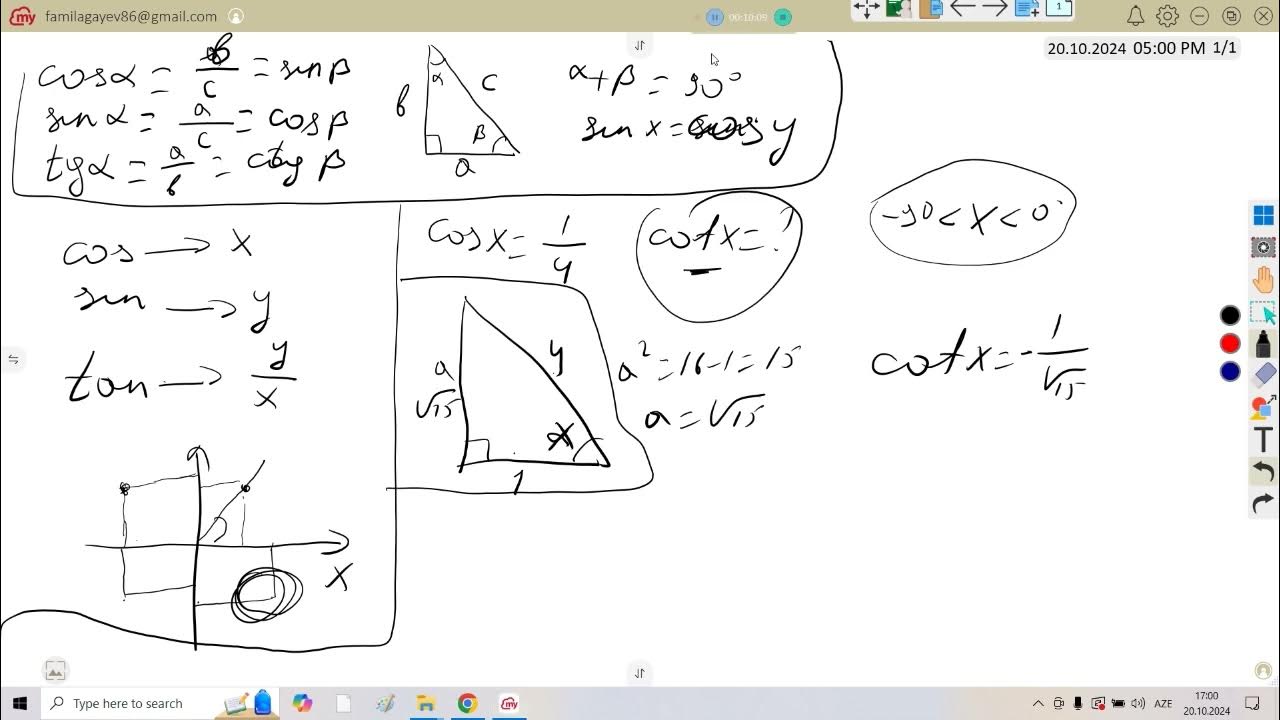 familagayev86@gmail.com
00:10:09
1
20.10.2024 05:00 PM 1/1
cosα = b/c = sinβ
sinα = a/c = cosβ
tgα = a/b = ctgβ
b α c
β
a
α+β = 90°
sin x = cos y
-90 < x < 0°
cos → x
sin → y
tan → y/x
x
cosx = 1/4
cotx = ?
a
√15
4
x
1
a² = 16-1 = 15
a = √15
cotx = -1/√15
Type here to search
AZE
17:00
20.10.2024